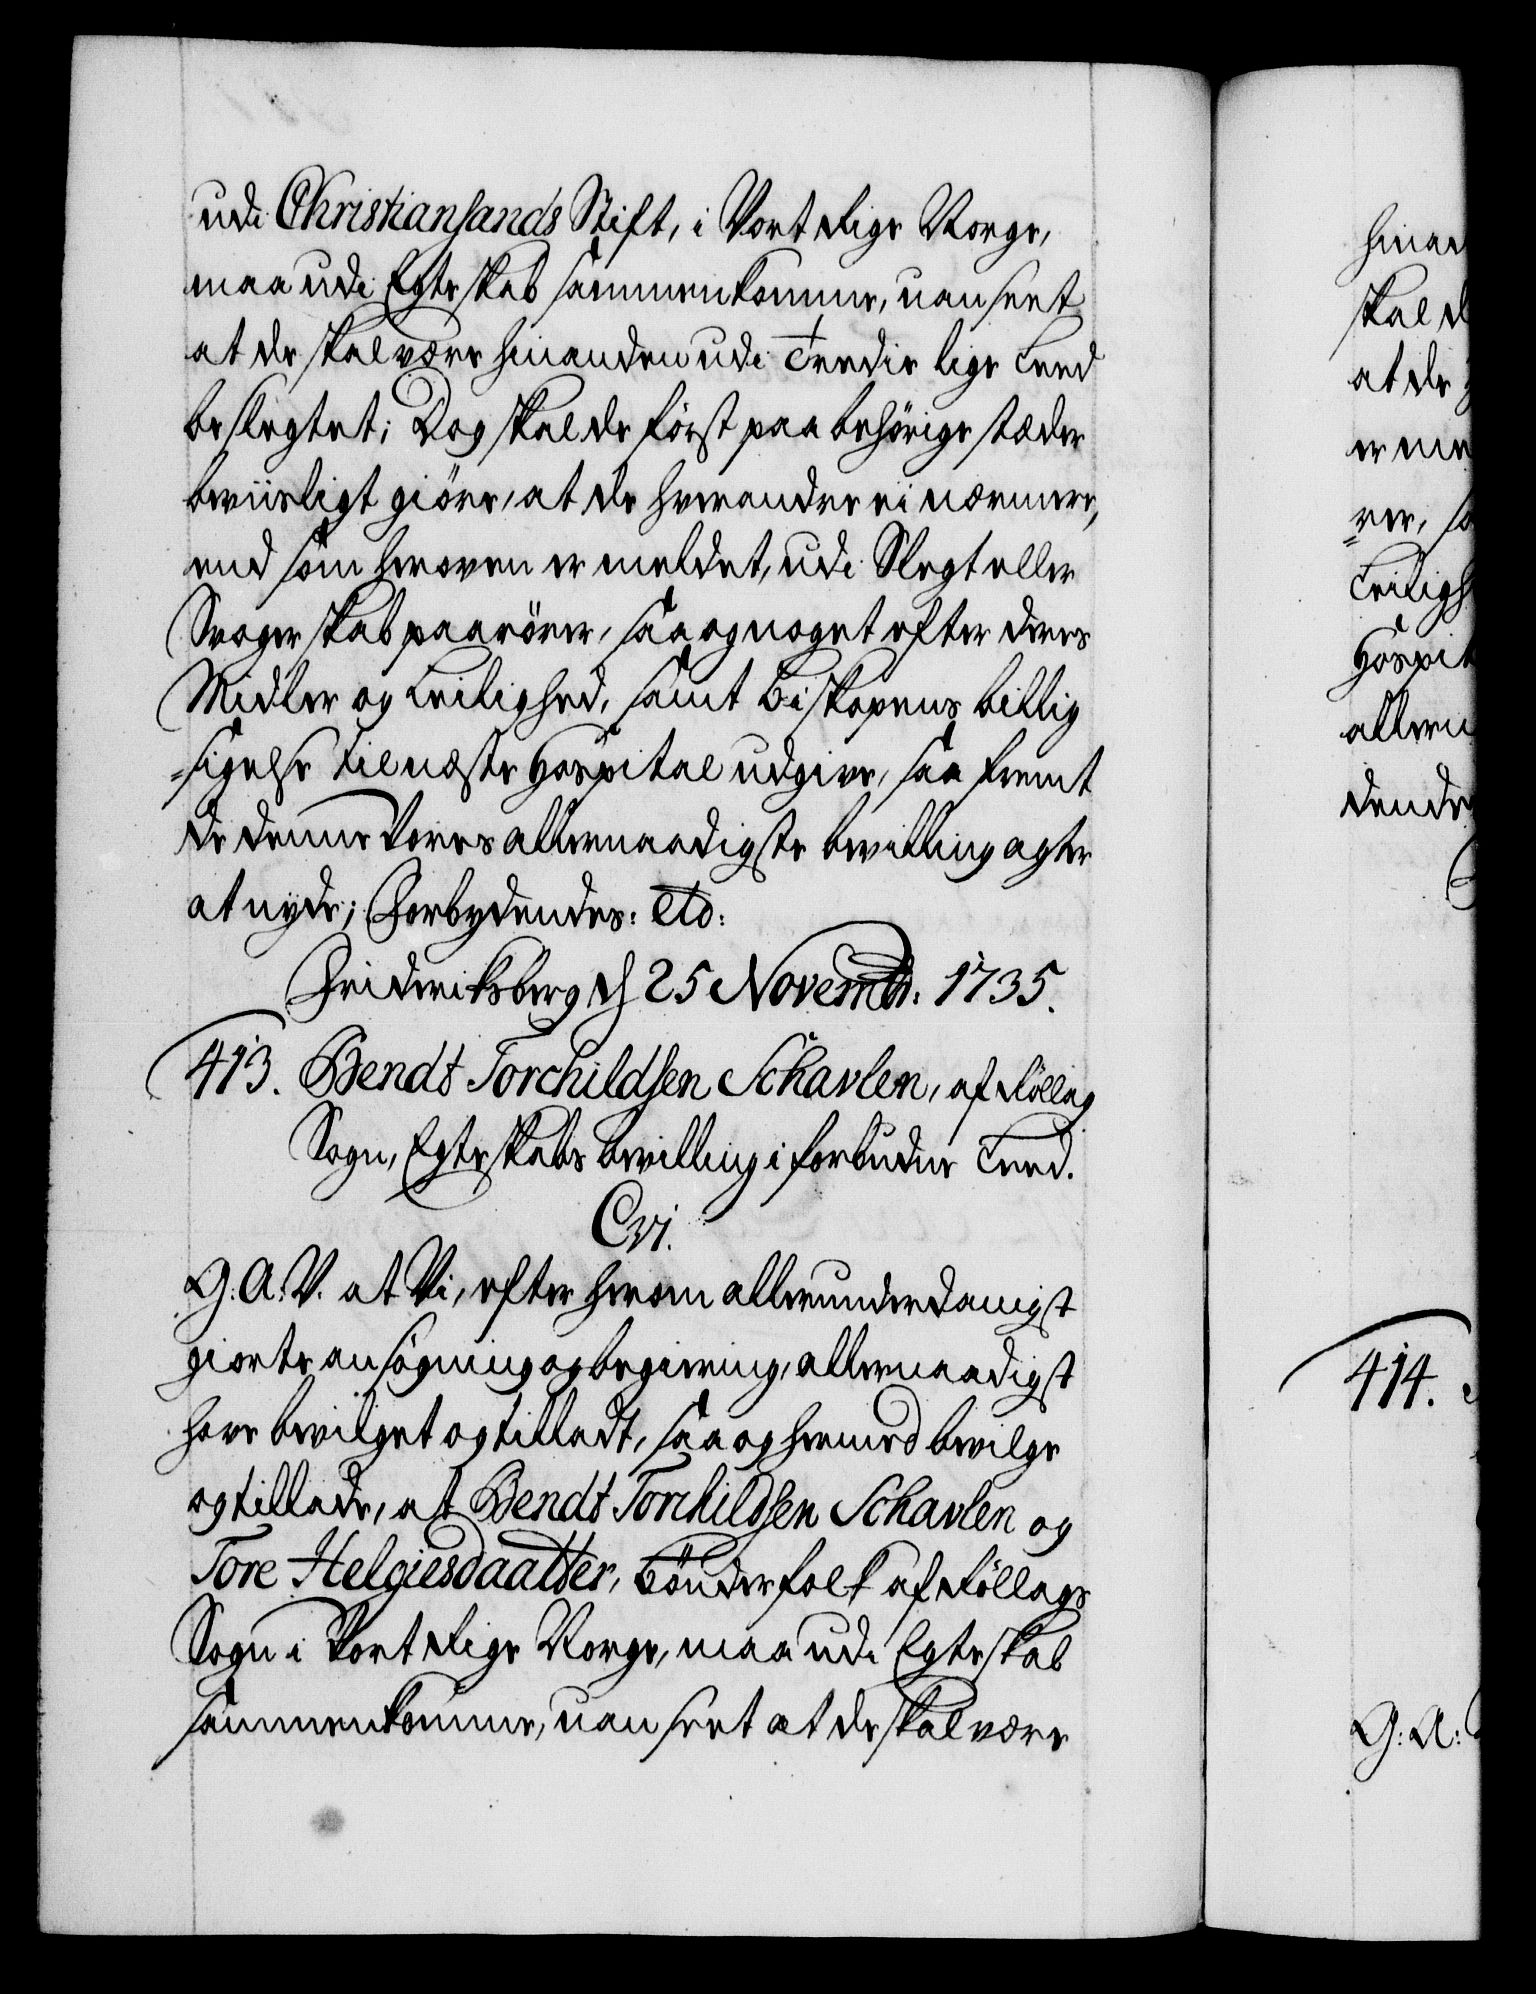 udi Christiansands Stift, i Vort Rige Norge,
maa udi Egteskab sammenkomme, uanseet
at de skal være hinanden udi Tredie lige Leed
beslegtet; Dog skal de först paa behörige stæder
beviisligt giöre, at de hverandre ei nærmere,
end som heroven er meldet, udi Slegt eller
Svogerskab paarörer, saa og noget efter deres
Midler og Leilighed, samt Biskopens billig
=sigelse til næste Hospital udgive, saa fremt
de denne Vores allernaadigste bevilling agter
at nyde; Forbydendes: etc:
Friderichsberg d 25 Novembr: 1735.
413. Bendt Torchildsen Schavlen, af Röllag
Sogn, Egteskabs bevilling i forbudne Leed.
C vj.
G: A: V. at Vi, efter herom allerunderdanigst
giorte ansögning og begiering, allernaadigst
have bevilget og tilladt, saa og hermed bevilge
og tillade, at Bendt Torchildsen Schavlen og
Tore Helgiesdaatter, Bönderfolk af Röllags
Sogn i Vort Rige Norge, maa udi Egteskab
sammenkomme, uanseet at de skal være
skal d
at de
er me
=rer, sa
Leiligh
Hospit
allern
dende
414.
G: A: